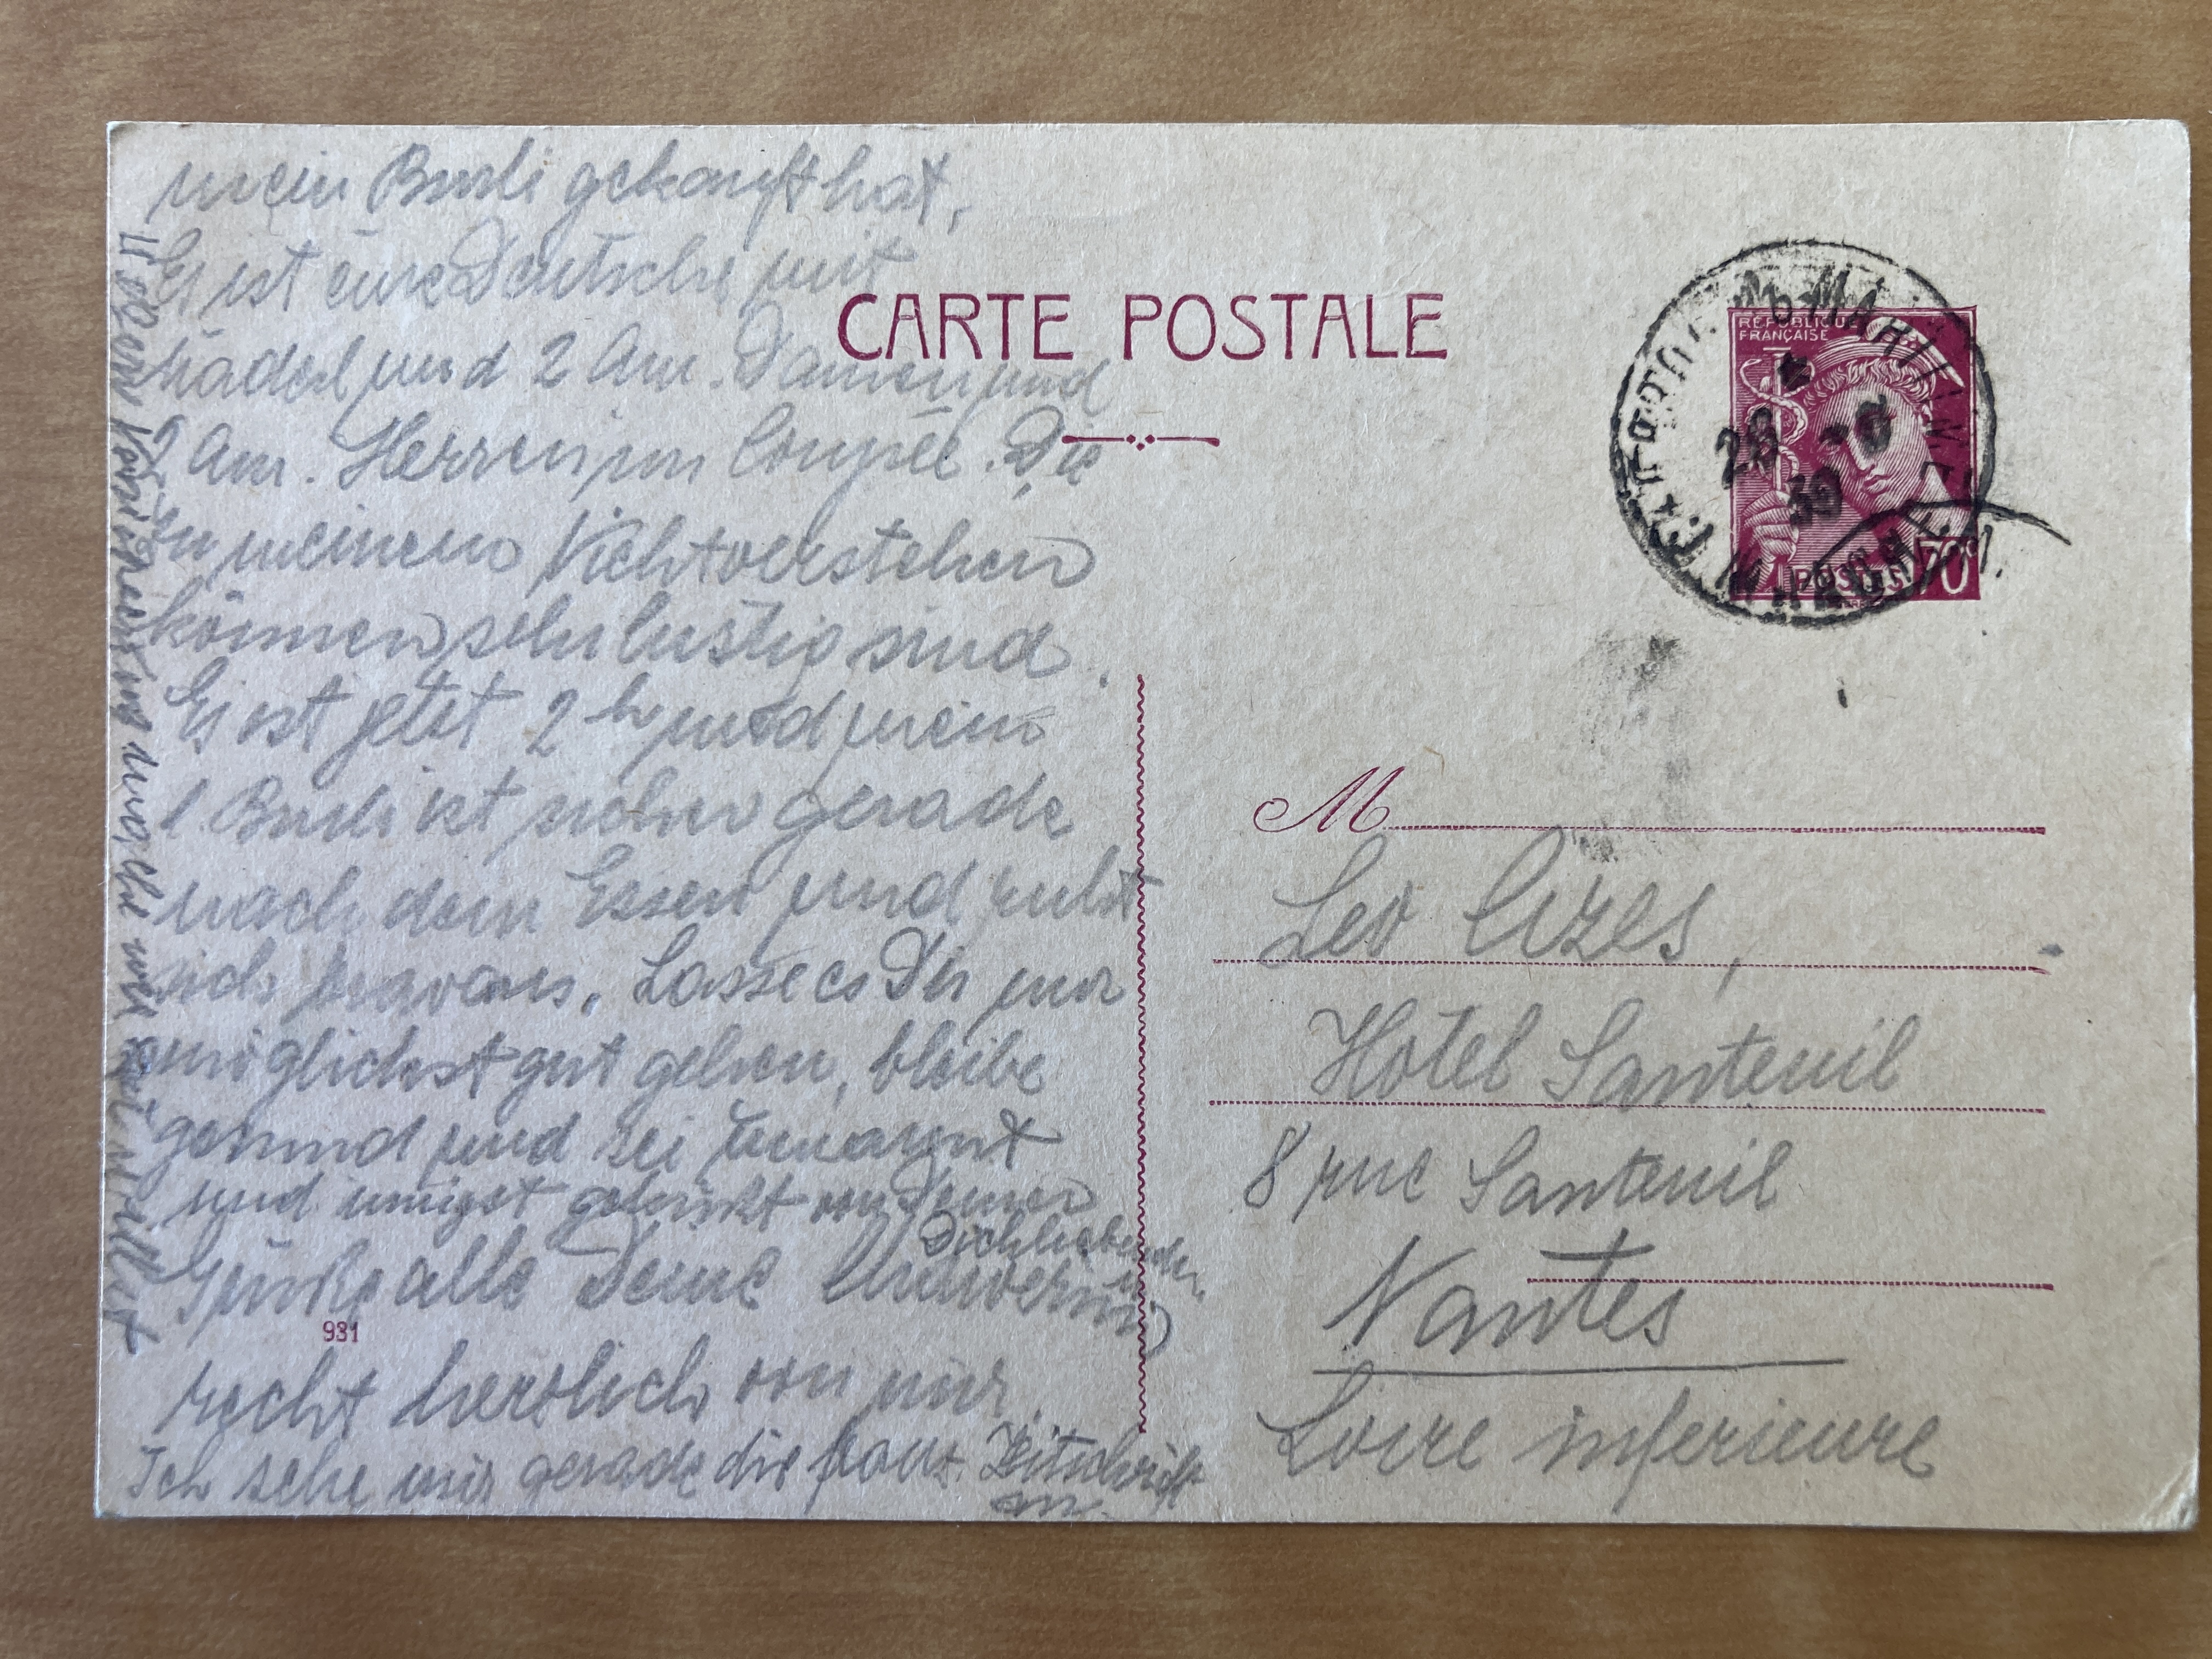 mein Burli gekauft hat,
Es ist eine Deutsche mit
Mädel und 2 Am. Damen und
2 Am. Herren im Coupée. Die
in meinem Nichtverstehen
können sehr lustig sind.
Es ist jetzt 2 h und mein
l. Burli ist sicher gerade
nach dem Essen und ruht
sich bravaus. Lasse es Dir nur
möglichst gut gehen, bleibe
gesund und sei umarmt
und innigst geküsst von Deiner
Dichliebenden
Grüße alle Deine
recht herzlich von mir
Ich sehe mir gerade die Zeitschrift
an.
und
CARTE POSTALE
RÉPUBLIQUE
FRANÇAISE
POSTES 70c
28
39
M
Leo Cizes,
Hotel Santeuil
8 rue Santeuil
Nantes
Loire inferieure
931